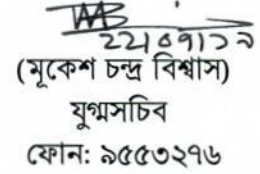 22/09/19
(মূকেশ চন্দ্র বিশ্বাস)
যুগ্মসচিব
ফোন: ৯৫৫৩২৭৬